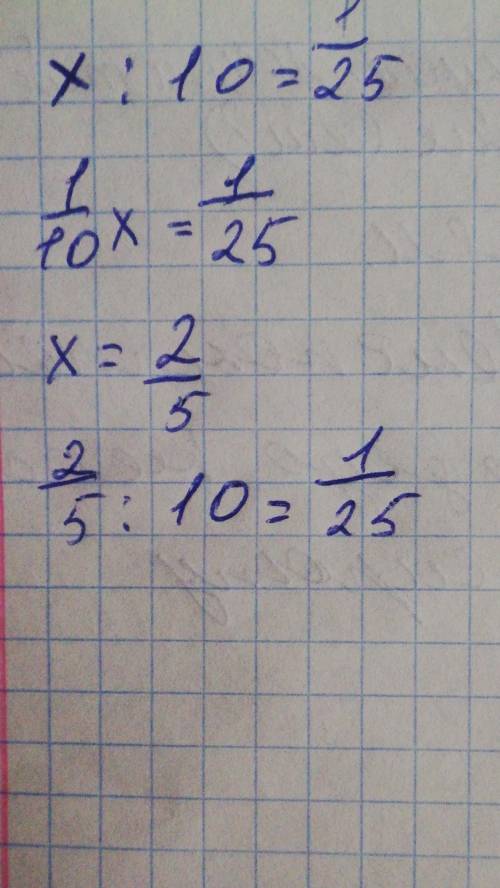 x : 10 = 1/25
1/10 x = 1/25
x = 2/5
2/5 : 10 = 1/25